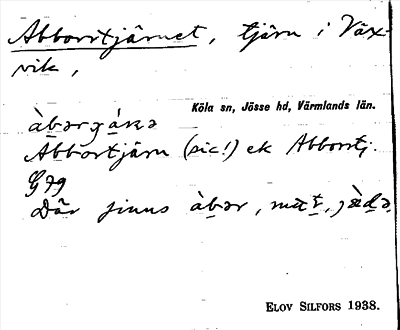 Abborrtjärnet, tjärn i Växvik,
Köla sn, Jösse hd, Värmlands län.
Abbortjärn (sic!) ek Abborrtj.
Där finns àbər, mɑt, jæ̀də.
ELOV SILFORS 1938.